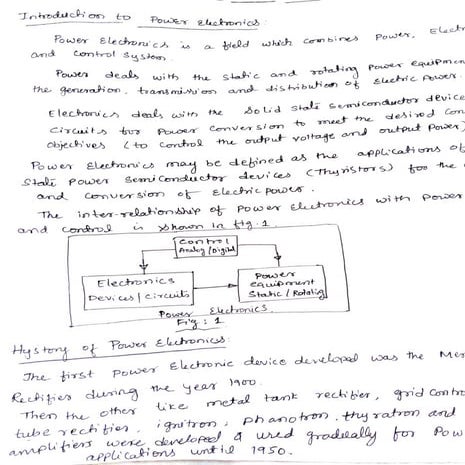 Introduction to Power Electronics:
Power Electronics is a field which combines Power, Elect
and control system.
Power deals with the static and rotating power equipmen
the generation, transmission and distribution of Electric Power.
Electronics deals with the Solid State Semiconductor device
Circuits for Power Conversion to meet the desired con
objectives (to control the output voltage and output power)
Power Electronics may be defined as the applications of
State power Semiconductor devices (Thyristors) for the
and conversion of Electric power.
The inter-relationship of Power Electronics with power
and control is shown in fig. 1.
Control
Analog/Digital
Electronics
Devices/Circuits
Power
equipment
Static/Rotating
Power Electronics
Fig: 1
Hystory of Power Electronics:
The first Power Electronic device developed was the Mer
Rectifier during the year 1900.
Then the other like metal tank rectifier, grid contr
tube rectifier, ignitron, phanotron, thyratron and
amplifiers were developed & used gradually for Pow
applications until 1950.